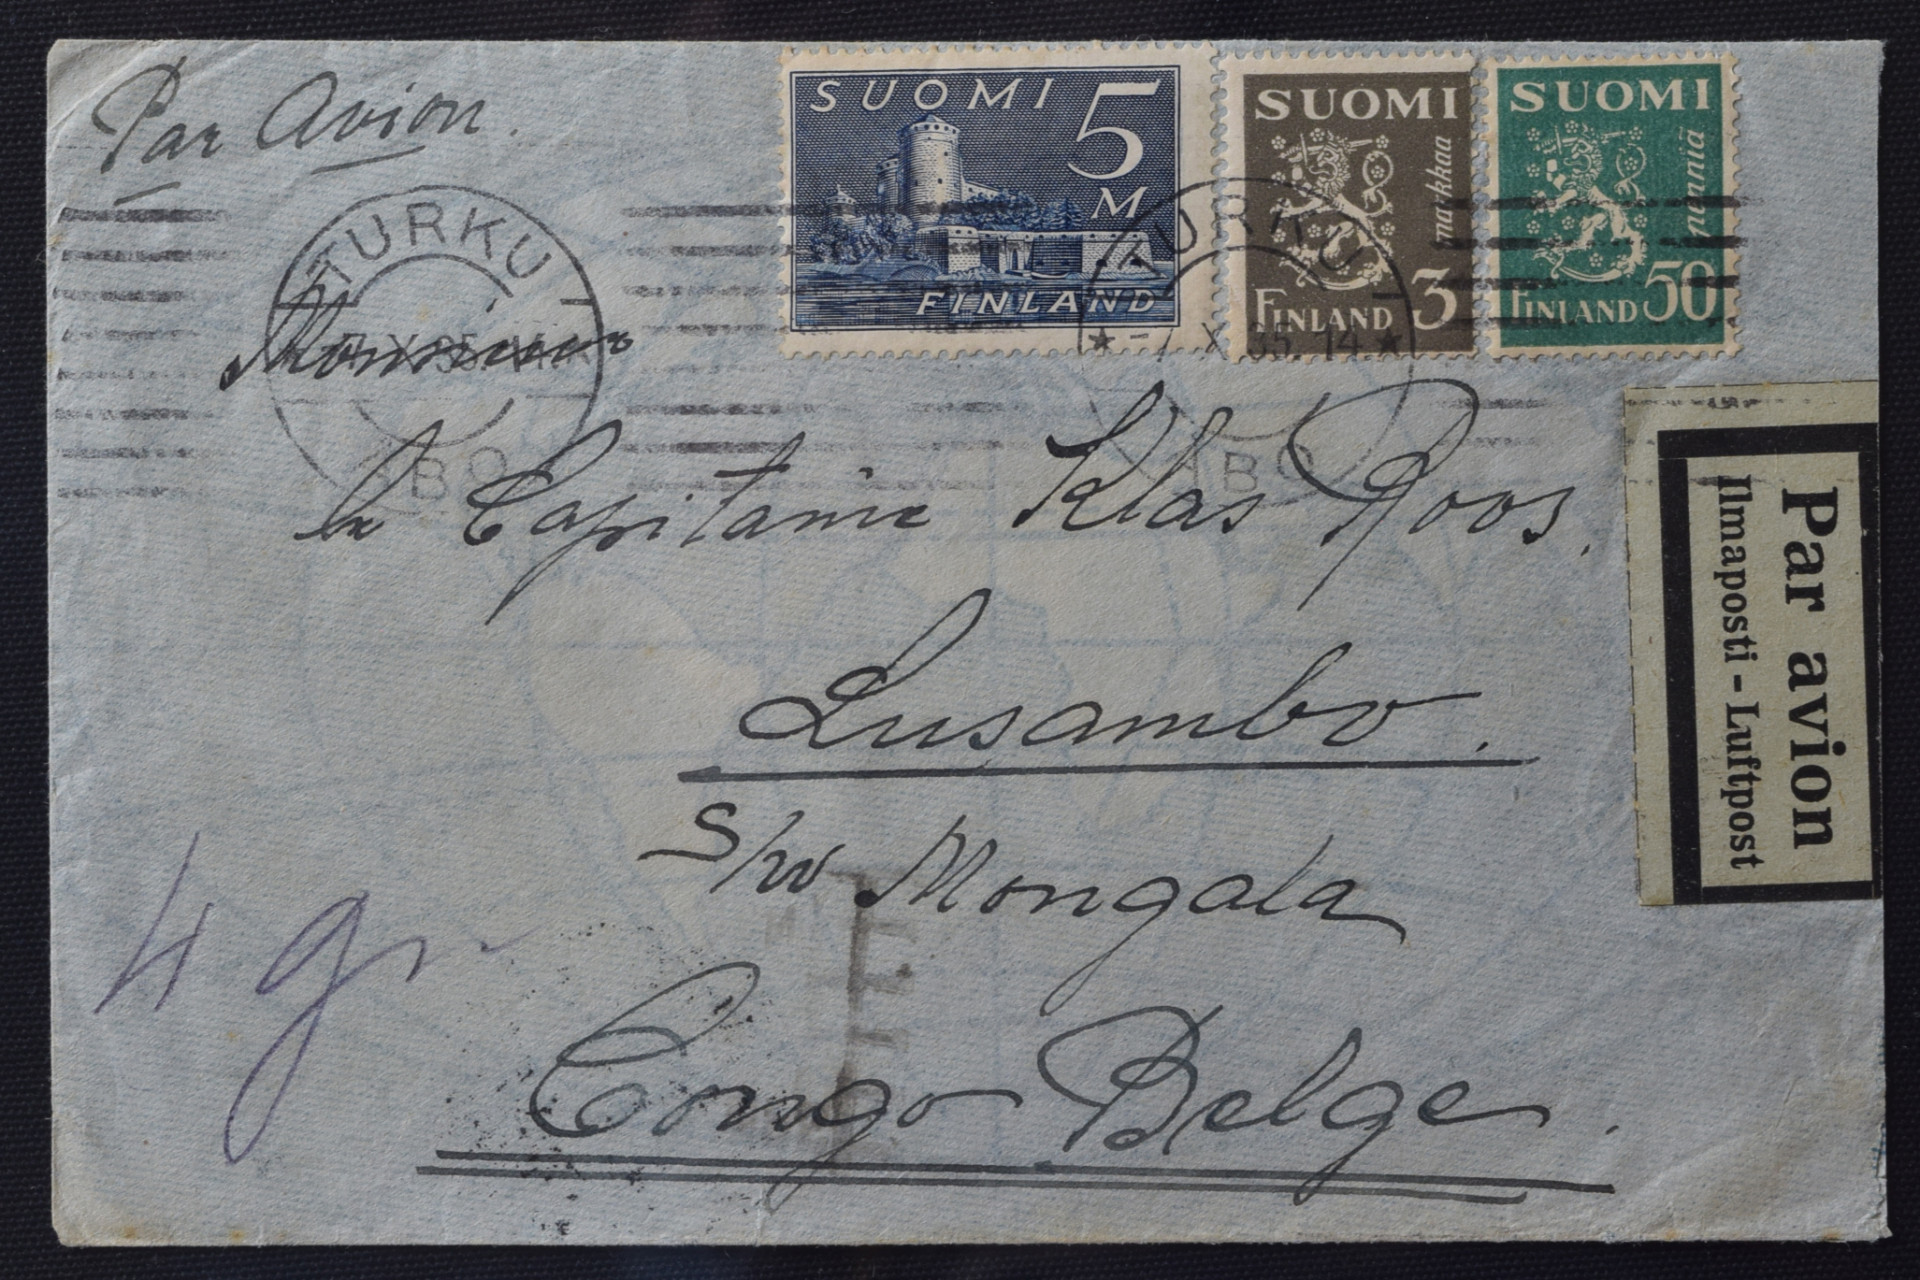 Par Avion.
SUOMI 5
M
FINLAND
SUOMI
makkaa
FINLAND 3
SUOMI
penniä
FINLAND 50
TURKU
ÅBO
TURKU
X 35. 14
ÅBO
Monsieur
le Capitaine Klas Roos.
Lusambo.
S/W Mongala
Congo Belge.
4 gr
Par avion
Ilmaposti - Luftpost